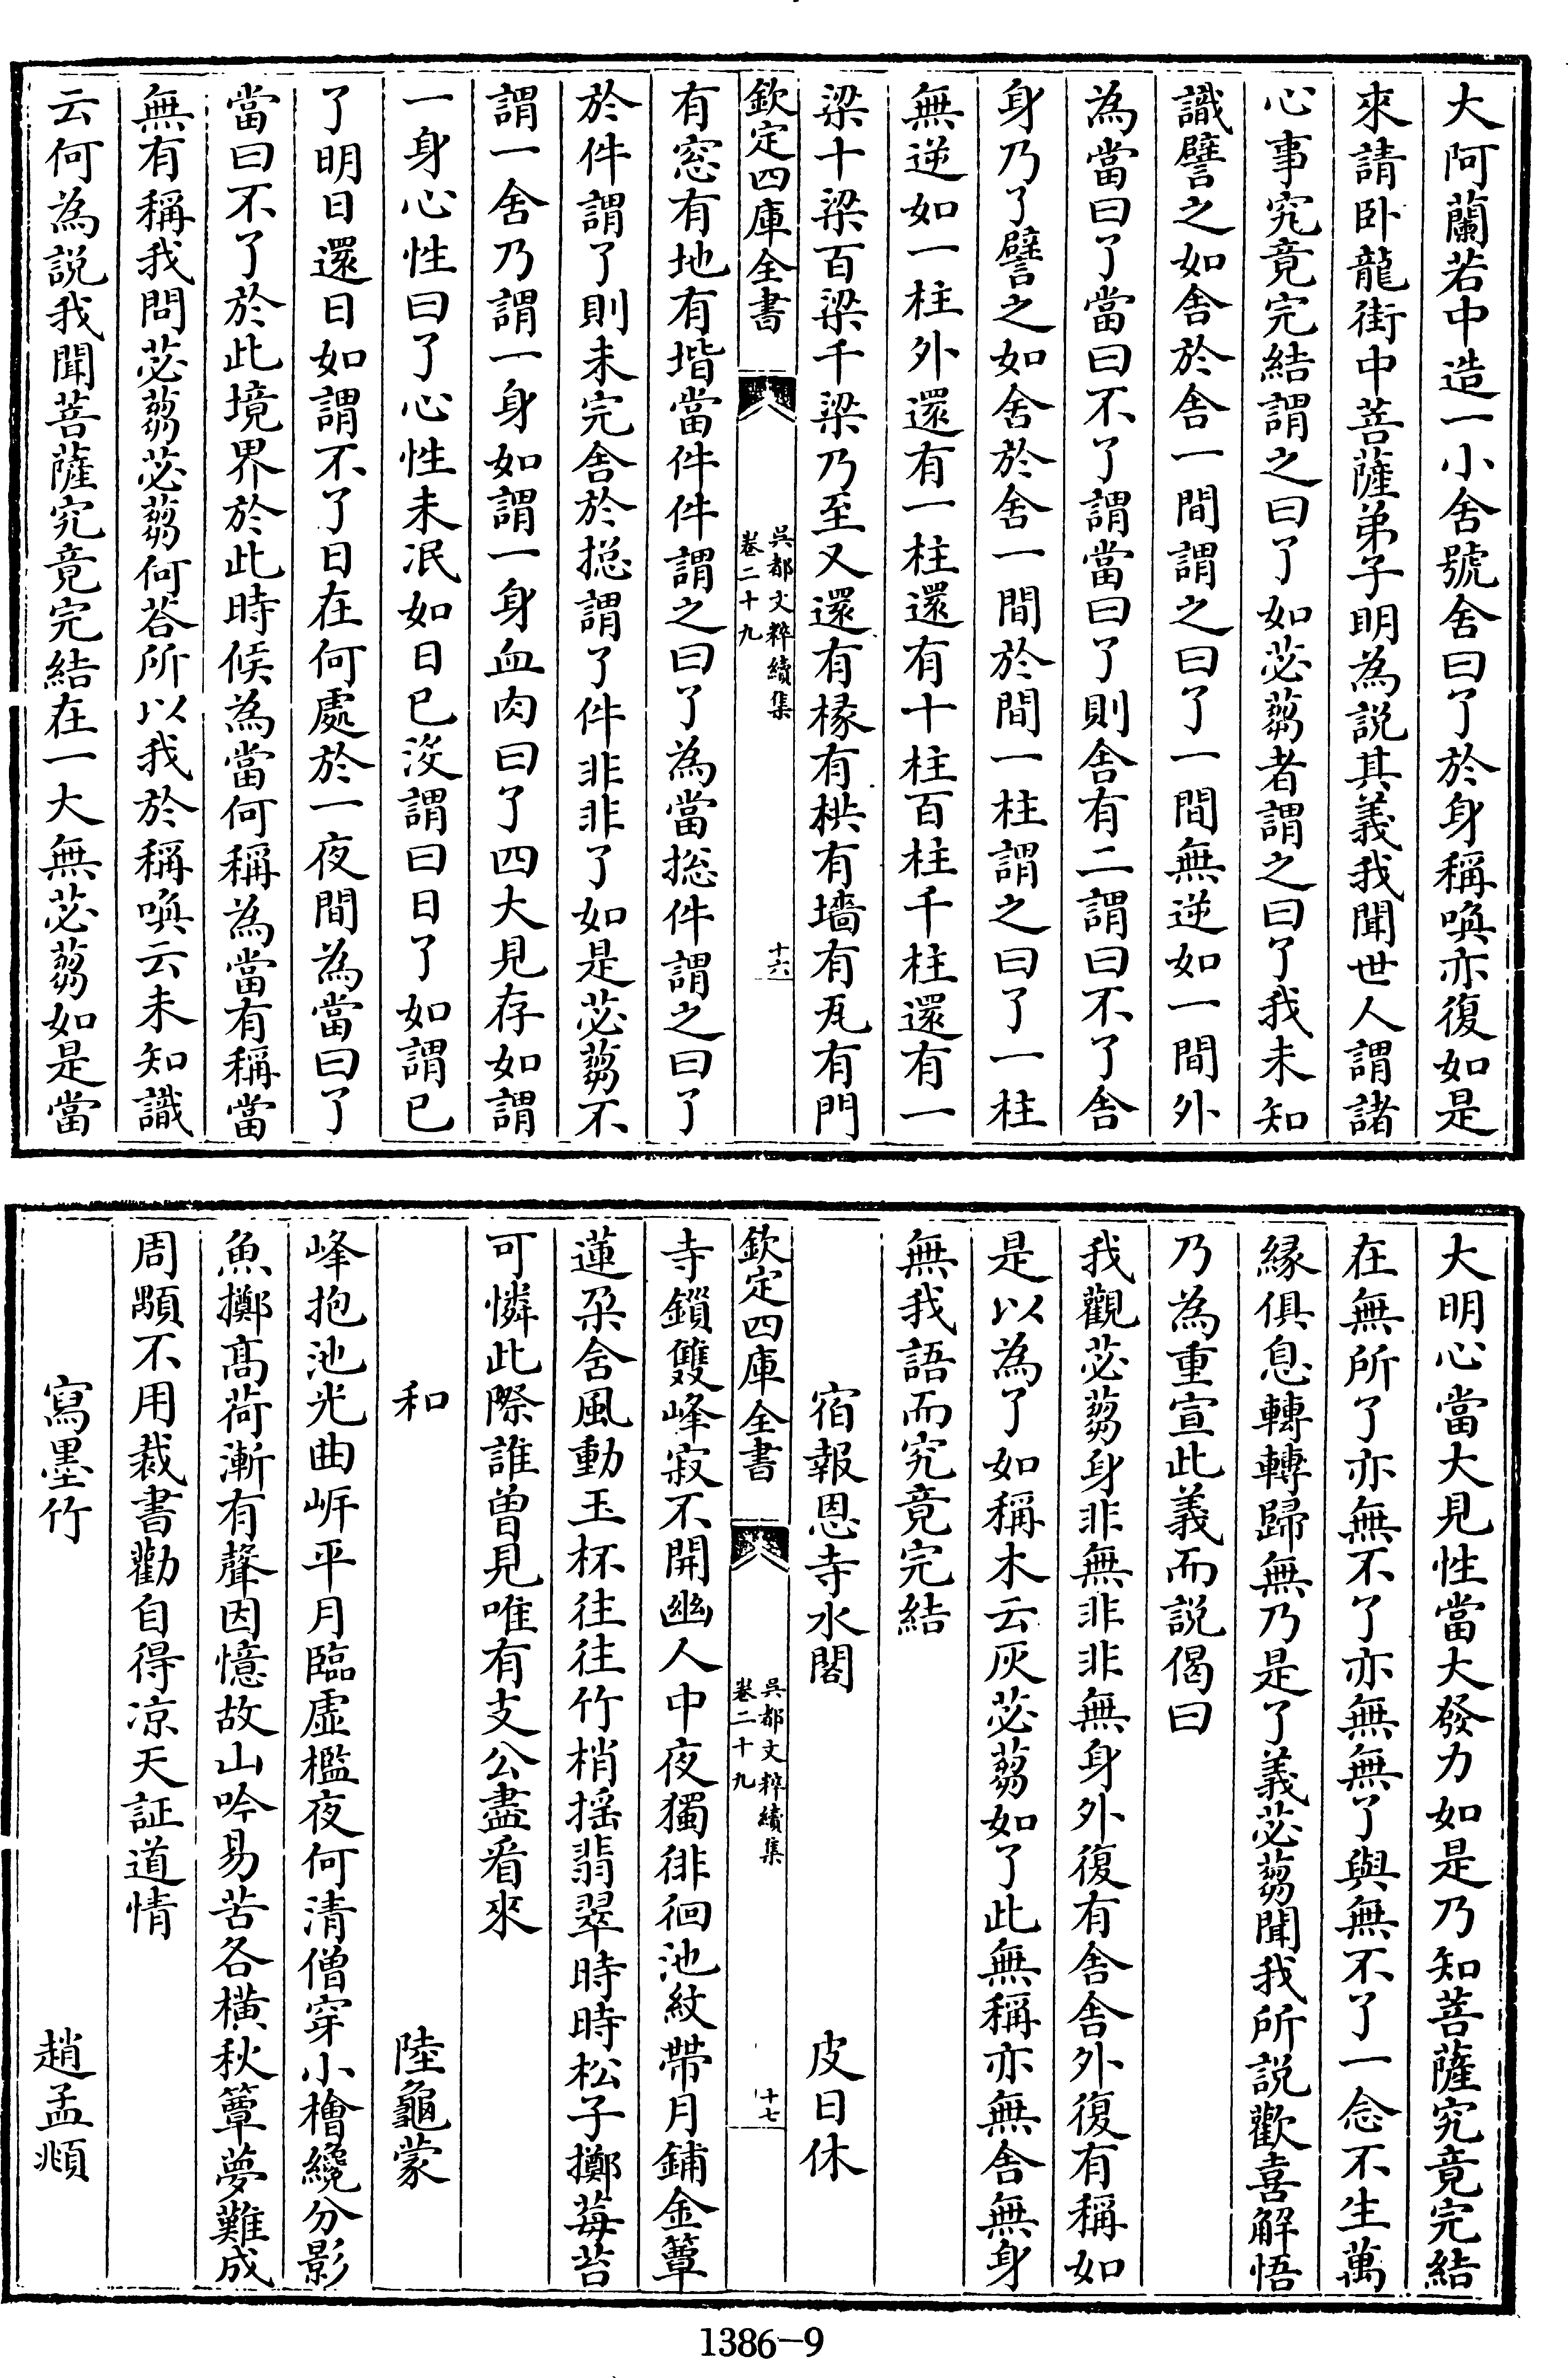 大阿蘭若中造一小舍號舍曰了於身稱喚亦復如是
來請卧龍街中菩薩弟子明為說其義我聞世人謂諸
心事究竟完結謂之曰了如苾蒭者謂之曰了我未知
識譬之如舍於舍一間謂之曰了一間無逆如一間外
為當曰了當曰不了謂當曰了則舍有二謂曰不了舍
身乃了譬之如舍於舍一間於間一柱謂之曰了一柱
無逆如一柱外還有一柱還有十柱百柱千柱還有一
梁十梁百梁千梁乃至又還有椽有栱有墻有瓦有門
欽定四庫全書
吳都文粹續集
卷二十九
十六
有窓有地有堦當件件謂之曰了為當總件謂之曰了
於件謂了則未完舍於總謂了件非非了如是苾蒭不
謂一舍乃謂一身如謂一身血肉曰了四大見存如謂
一身心性曰了心性未泯如日已沒謂曰日了如謂已
了明日還日如謂不了日在何處於一夜間為當曰了
當曰不了於此境界於此時候為當何稱為當有稱當
無有稱我問苾蒭苾蒭何荅所以我於稱喚云未知識
云何為説我聞菩薩究竟完結在一大無苾蒭如是當
大明心當大見性當大發力如是乃知菩薩究竟完結
在無所了亦無不了亦無無了與無不了一念不生萬
緣俱息轉轉歸無乃是了義苾蒭聞我所説歡喜解悟
乃為重宣此義而説偈曰
我觀苾蒭身非無非非無身外復有舍舍外復有稱如
是以為了如稱木云灰苾蒭如了此無稱亦無舍無身
無我語而究竟完結
宿報恩寺水閣
皮日休
欽定四庫全書
吳都文粹續集
卷二十九
十七
寺鎖雙峰寂不開幽人中夜獨徘徊池紋帶月鋪金簟
蓮朶含風動玉杯往往竹梢摇翡翠時時松子擲莓苔
可憐此際誰曾見唯有支公盡㸔來
和
陸龜蒙
峰抱池光曲岍平月臨虛檻夜何清僧穿小檜纔分影
魚擲髙荷漸有聲因憶故山吟易苦各橫秋簟夢難成
周顒不用裁書勸自得凉天証道情
寫墨竹
趙孟頫
1386-9